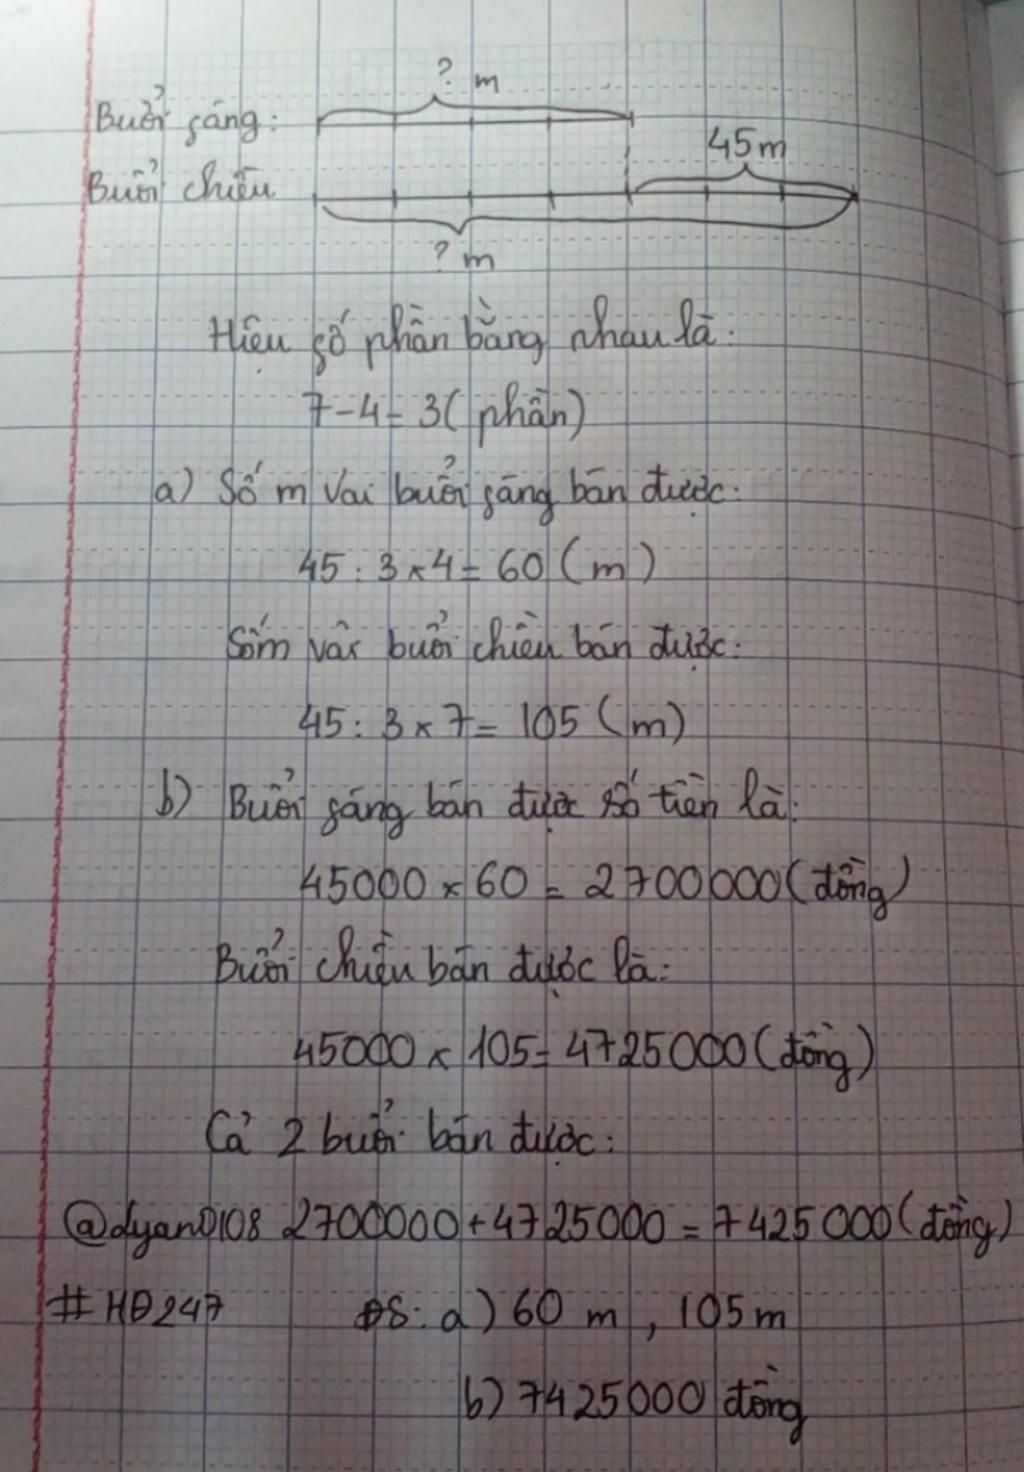 ? m
Buổi sáng:
45m
Buổi chiều
? m
Hiệu số phần bằng nhau là:
7-4=3( phần)
a) Số m vải buổi sáng bán được:
45 : 3 × 4 = 60 ( m )
Số m vải buổi chiều bán được:
45 : 3 × 7 = 105 ( m)
b) Buổi sáng bán được số tiền là:
45000 × 60 = 2700000 ( đồng)
Buổi chiều bán được là:
45000 × 105 = 4725000 ( đồng)
Cả 2 buổi bán được:
@dyan0108 2700000 + 4725000 = 7425000 ( đồng)
#HĐ247 ĐS: a ) 60 m , 105 m
b) 7425000 đồng